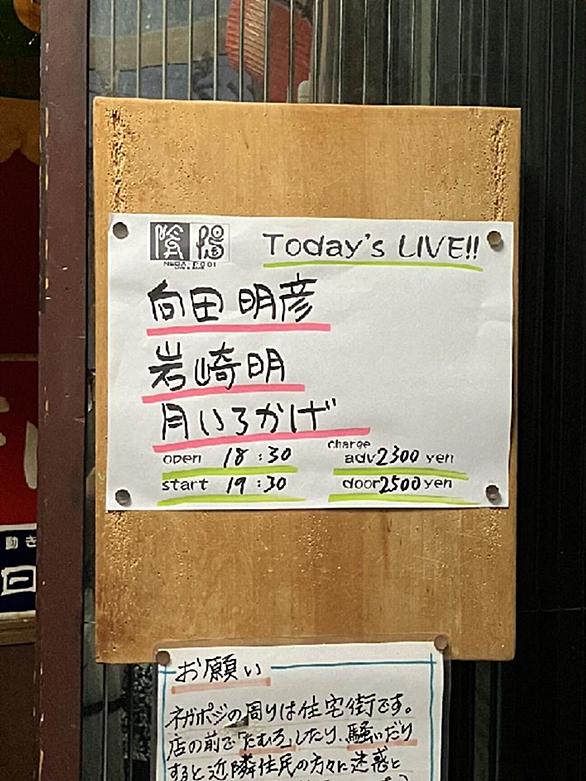 陰陽
Today's LIVE!!
向田明彦
岩崎明
月いろかげ
open 18:30
start 19:30
charge
adv 2300 yen
door 2500 yen
お願い
ネガポジの周りは住宅街です。
店の前で「たむろ」したり、騒いだり
すると近隣住民の方々に迷惑と
動き